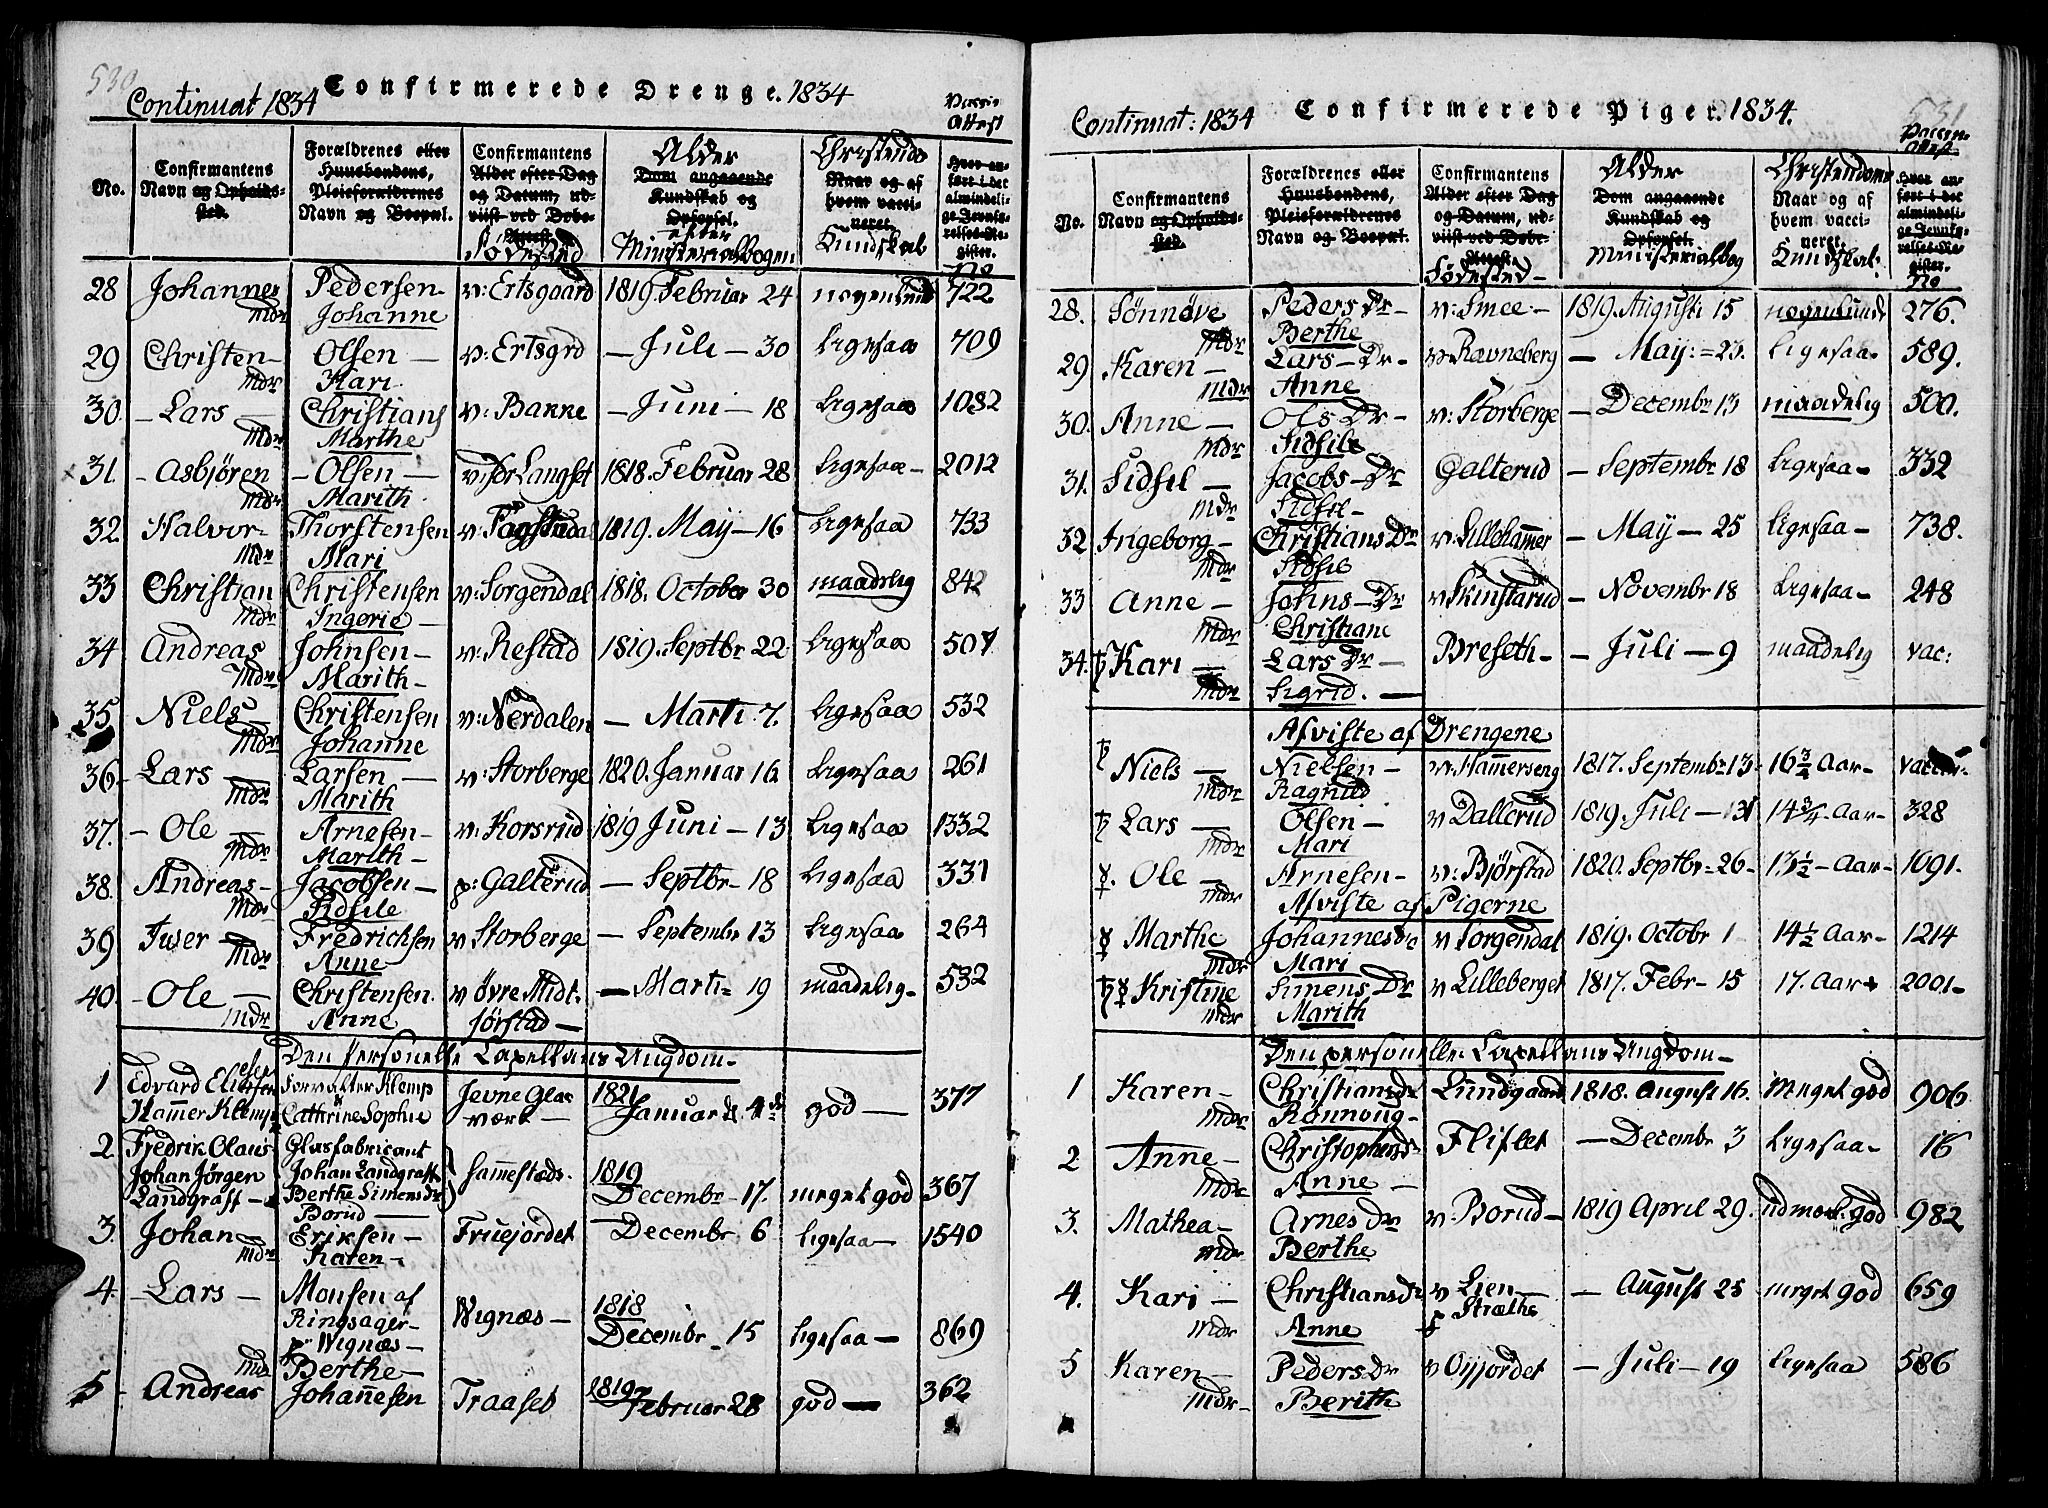 530
Continuat 1834 Confirmerede Drenge. 1834
Attest
No.
Confirmantens
Navn og Opholds-
sted.
Forældrenes eller
Huusbondens,
Pleieforældrenes
Navn og Boepæl.
Confirmantens
Alder efter Dag
og Datum, ud-
viist ved Døbe-
Attest.
Födested
Alder
Dom angaaende
Kundskab og
Opførsel.
efter
Ministerialbogen
Christendo
Naar og af
hvem vacci-
neret.
Kundskab
Hvor an-
ført i det
almindeli-
ge Jevnfø-
relses-Re-
gister.
No
28 Johannes Pedersen v: Ertsgaard 1819. Februar 24 722
Mdr Johanne
29 Christen Olsen v: Ertsgrd — Juli — 30 Ligesaa 709
Mdr Kari
30. Lars Christians v: Banne — Juni — 18 Ligesaa 1032
Mdr Marthe
31. Asbjören Olsen v: Langset 1818. Februar 28 Ligesaa 2012
Mdr Marith
32 Halvor Thorstensen 1819. May — 16 Ligesaa 733
Mdr Mari
33 Christian Christensen v: Sorgendal 1818. October 30 maadelig 842
Mdr Ingerie
34 Andreas Johnsen v: Restad 1819. Septbr 22. Ligesaa 507
Mdr Marith
35 Niels Christensen v: Nerdalen — Marti 7. Ligesaa 532
Mdr Johanne
36 Lars Larsen v: Storberge 1820. Januar 16. Ligesaa 261
Mdr Marith
37. Ole Arnesen v: Korsrud 1819 Juni — 13 Ligesaa 1332
Mdr Marith
38. Andreas Jacobsen p: Galterud — Septbr 18 Ligesaa 331
Mdr Sidsile
39 Iwer Fredrichsen v Storberge — Septembr 13 Ligesaa 264
Mdr Anne
40. Ole Christensen v øvre Midt- — Marti 19 maadelig 532
Mdr Anne jørstad
Den Personelle Capellans Ungdom
1 Edvard Forvalter Klemp Jevne Glas 1821
Hammer Klemp Cathrine Sophie værk Januar d 4de god 377
2 Fredrik Olaus Glasfabricant
Johan Jörgen Johan Landgraff Sammestæds. 1819
Landgraff Berthe Simens Dr Decembr 17. meget god 367
Borud
3. Johan Eriksen Fruejordet — Decembr 6 ligesaa 1540
Mdr Karen
4 Lars Monsen af
Ringsager Wignæs 1818
Wignæs Decembr. 15 ligesaa 869
Mdr Berthe
5 Andreas Johannesen Traaset 1819 Februar 28 god 362
531
Continuat: 1834 Confirmerede Piger. 1834.
Vaccin.
Attest
No.
Confirmantens
Navn og Opholds-
sted.
Forældrenes eller
Huusbondens,
Pleieforældrenes
Navn og Boepæl.
Confirmantens
Alder efter Dag
og Datum, ud-
viist ved Døbe-
Attest.
Födested
Alder
Dom angaaende
Kundskab og
Opførsel.
Ministerialbog
Christendoms
Naar og af
hvem vacci-
neret.
Kundskab
Hvor an-
ført i det
almindeli-
ge Jevnfø-
relses-Re-
gister.
No
28. Sönnøve Peders Dr v: Smee 1819. Augusti 15 276.
Mdr Berthe
29 Karen Lars Dr v Ravneberg — May 23. Ligesaa 589.
Mdr Anne
30. Anne Ols Dr v: Storberge — Decembr 13 maadelig 500.
Mdr Sidsile
31. Sidsel Jacobs Dr Galterud — Septembr 18 Ligesaa 332
Mdr Sidsel
32. Ingeborg Christians Dr v: Lillehammer — May — 25 Ligesaa 738.
Mdr Sidsel
33 Anne Johns Dr v Skinstarud — Novembr 18 Ligesaa 248
Mdr Christiane
34. Kari Lars Dr Breseth — Juli — 9 maadelig vac:
Mdr Sigrid.
Afviste af Drengene
Niels Nielsen v: Hammerseng 1817. Septembr 13 16 3/4 Aar
Mdr Ragnild
Lars Olsen v Dallerud 1819. Juli 14 3/4 Aar 328
Mdr Mari
Ole Arnesen v: Bjørstad 1820. Septbr 26 13 1/2 Aar 1691.
Mdr Afviste af Pigerne
Marthe Johannesdr v Sorgendal 1819. Octobr 1 14 1/2 Aar 1214
Mdr Mari
Kristine Simens Dr v Lilleberget 1817. Febr 15 17. Aar 2001
Mdr Marith
Den personelle Capellans Ungdom
1 Karen Christiansdr Lundgaard 1818. August 16. Meget god 906
Mdr Rønnoug
2 Anne Christophersdr Fliflet — Decembr 3 ligesaa 16
Mdr Anne
3. Mathea Arnes Dr v: Borud 1819 April 29. udmærk. god 982
Mdr Berthe
4. Kari Christiansdr v Lien — August 25 meget god 659
Mdr Anne Stræthe
5 Karen Peders Dr v Oijjordet — Juli — 19 ligesaa 586
Mdr Berith